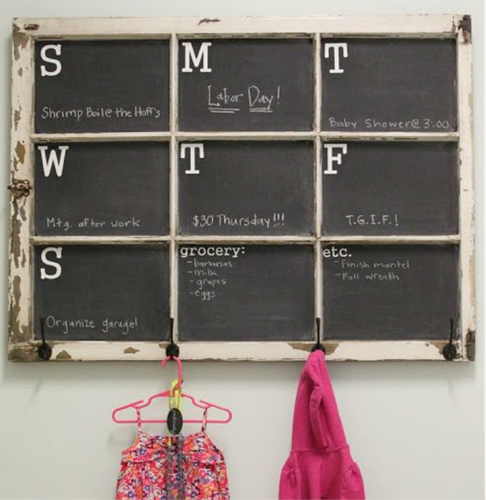 S
Shrimp Boil @ the Hoff's
M
Labor Day!
T
Baby Shower @ 3:00
W
Mtg. after work
T
$30 Thursday!!!
F
T.G.I.F.!
S
Organize garage!
grocery:
- bananas
- milk
- grapes
- eggs
etc.
- Finish mantel
- Fall wreath